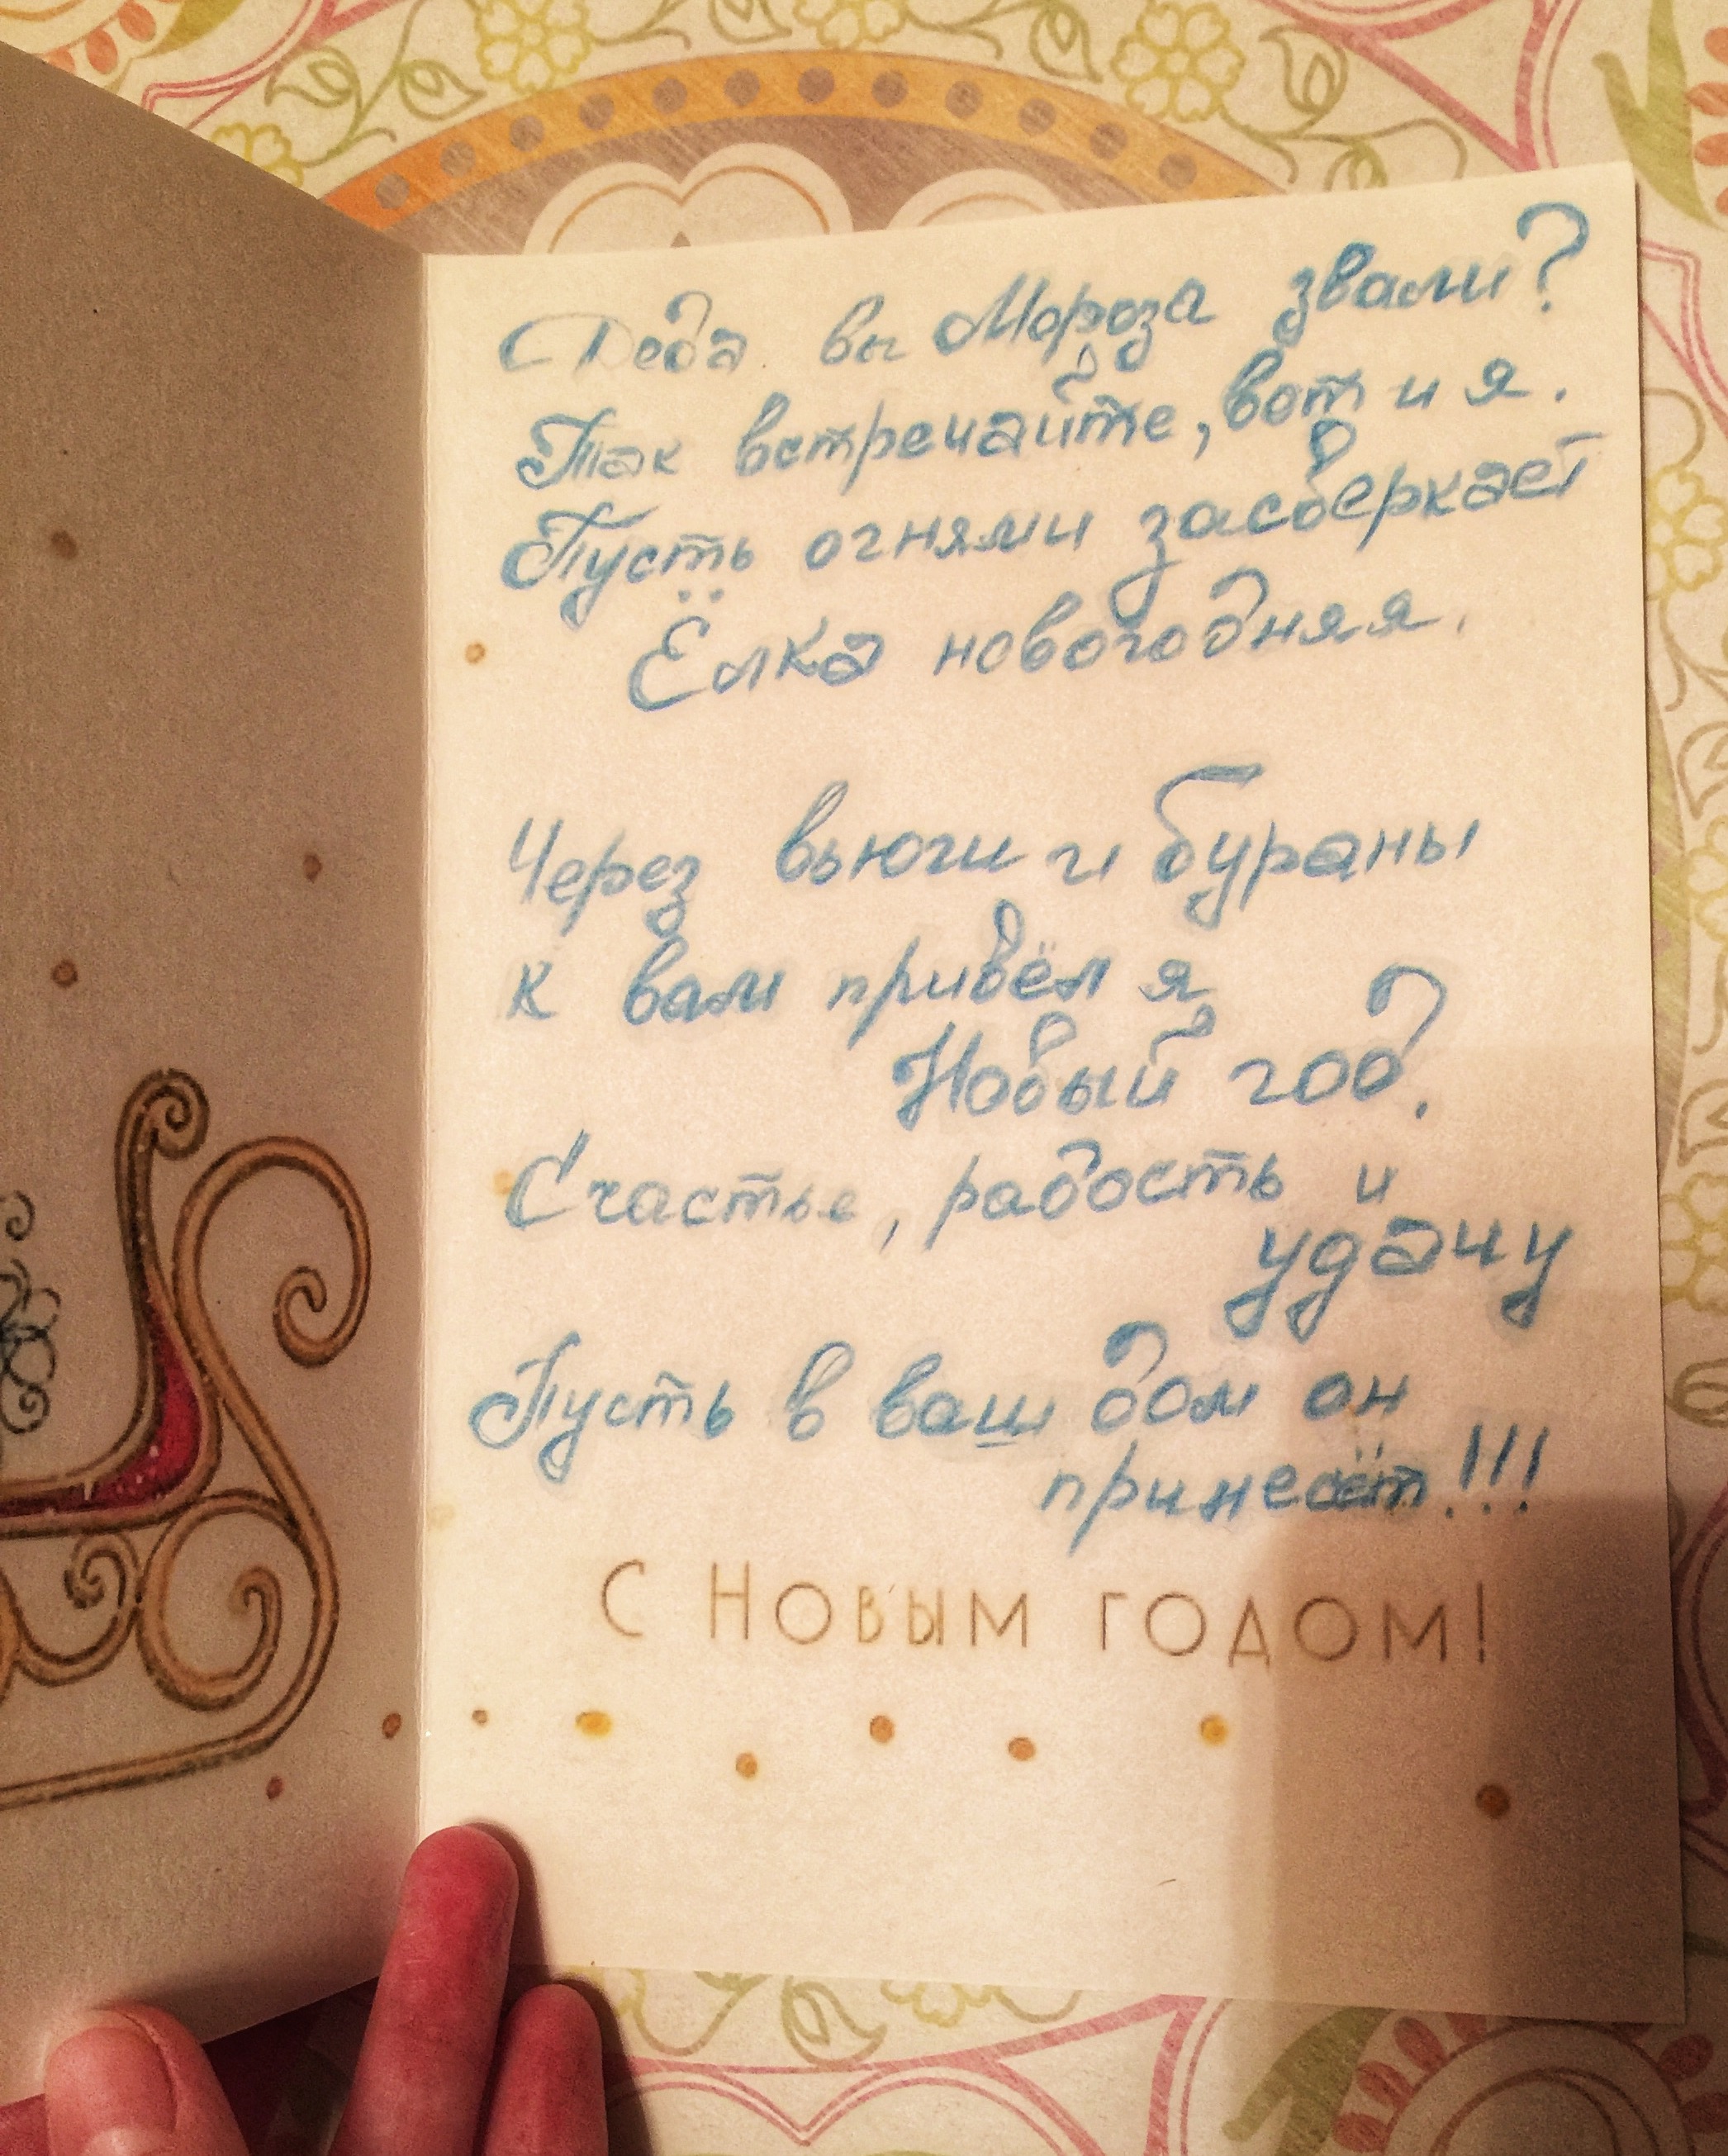 Деда вы Мороза звали?
Так встречайте, вот и я.
Пусть огнями засверкает
Ёлка новогодняя.
Через вьюги и бураны
к вам привёл я
Новый год.
Счастье, радость и
удачу
Пусть в ваш дом он
принесёт!!!
С НОВЫМ ГОДОМ!